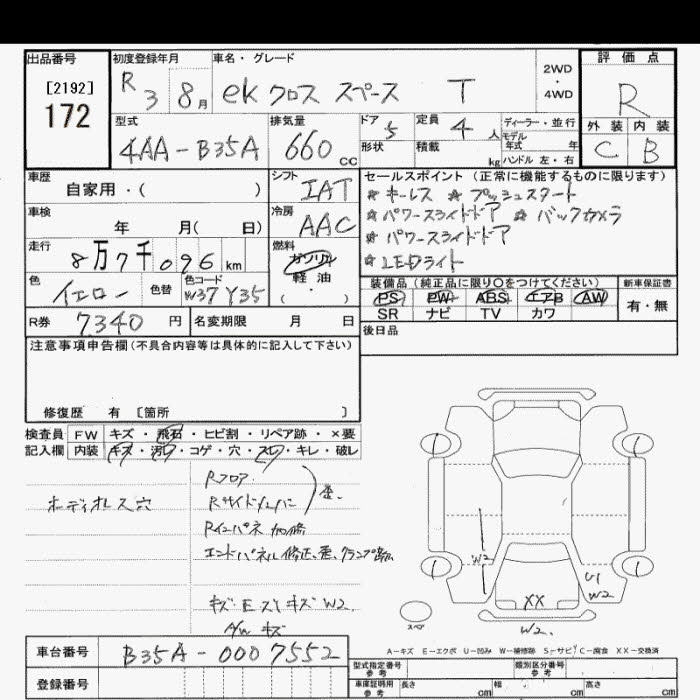 出品番号
[2192]
172
初度登録年月
R 3 8月
車名・グレード
ek クロス スペース T
2WD
・
4WD
評価点
R
外装 内装
C B
型式
4AA-B35A
排気量
660 cc
ドア 5
形状
定員 4 人
積載 kg
ディーラー・並行
モデル年式 年
ハンドル 左・右
車歴
自家用・( )
シフト
IAT
車検
年 月( 日)
冷房
AAC
走行
8万7千096 km
燃料
ガソリン
軽・油
( ・ )
色
イエロー
色替
色コード
W37 Y35
R券 7,340 円
名変期限 月 日
セールスポイント(正常に機能するものに限ります)
☆キーレス ☆プッシュスタート
☆パワースライドドア ☆バックカメラ
☆パワースライドドア
☆LEDライト
装備品(純正品に限り○をつけてください)
PS PW ABS エアB AW
SR ナビ TV カワ
新車保証書
有・無
後日品
注意事項申告欄(不具合内容等は具体的に記入して下さい)
修復歴 有 [箇所 ]
検査員記入欄
FW キズ・飛石・ヒビ割・リペア跡・×要
内装 キズ・汚れ・コゲ・穴・スレ・キレ・破レ
ボディオレス穴
Rフロア
Rサイドメンバー
歪
Rインパネ 加修
エンドパネル 修正、歪、クランプ跡
キズ・E・スリキズ W2
A/W キズ
W2
U1
W2
XX
W2
スペア
A-キズ E-エクボ U-凹み W-補修跡 S-サビ C-腐食 XX-交換済
車台番号
B35A-0007552
登録番号
型式指定番号
参考
類別区分番号
参考
車庫証明用
参考
長さ cm
幅 cm
高さ cm